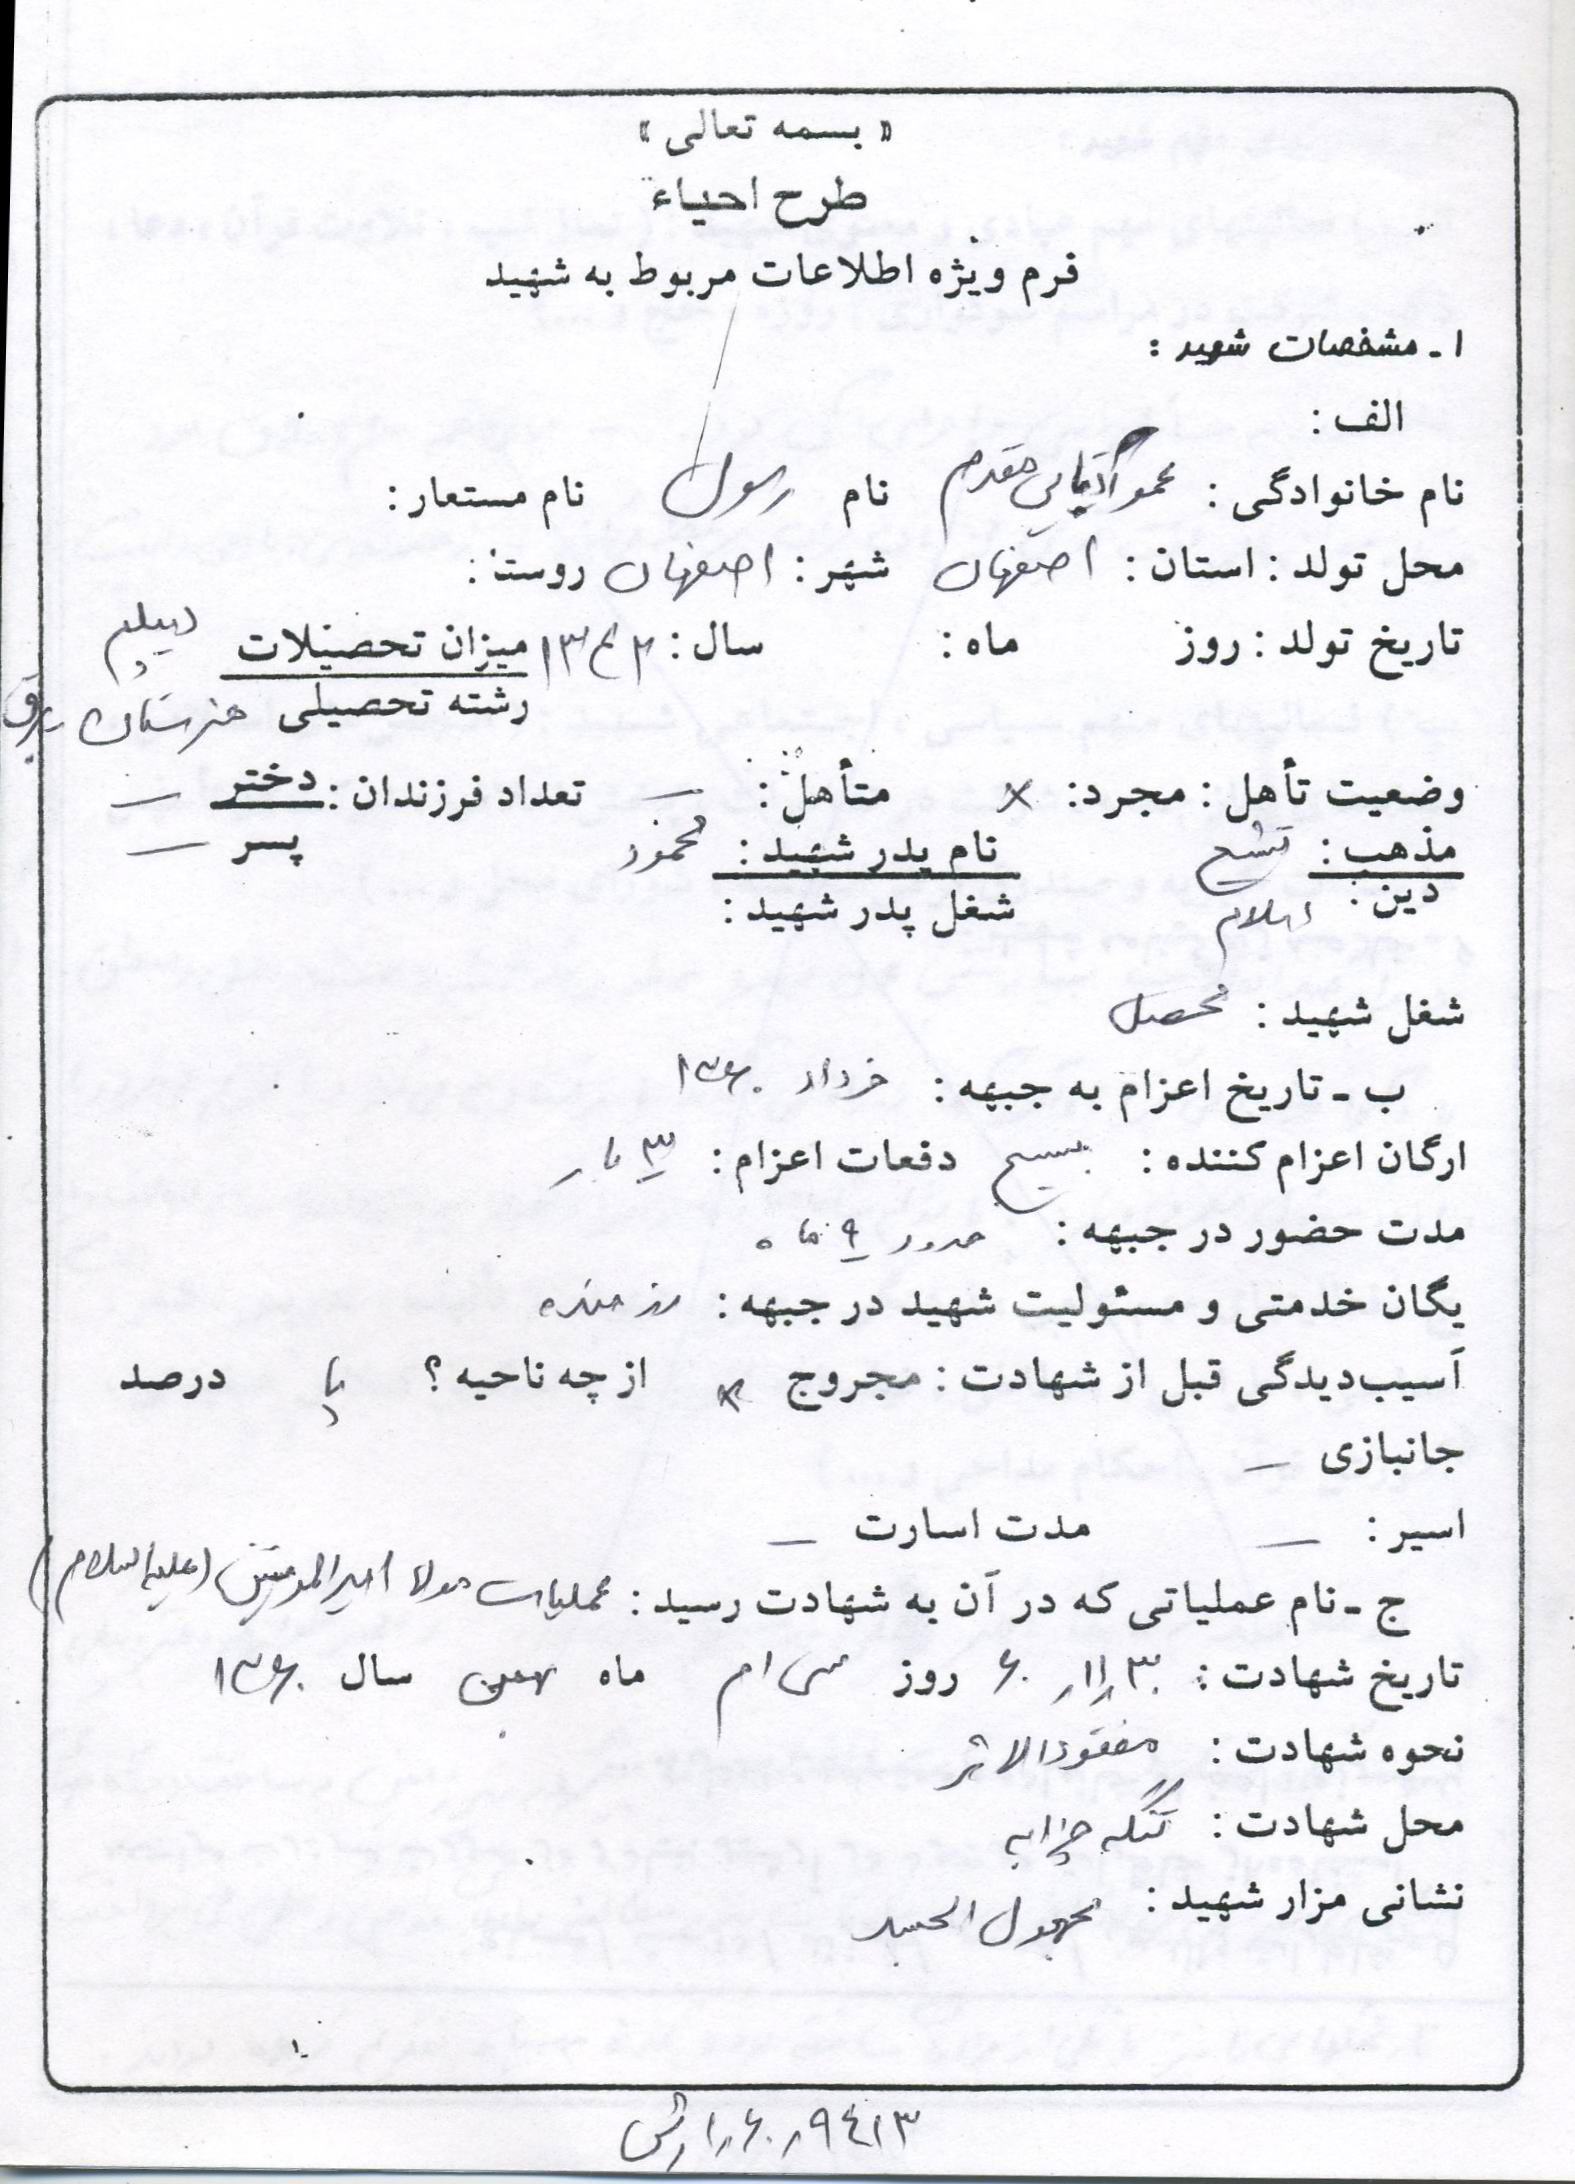 « بسمه تعالی »
طرح احیاء
فرم ویژه اطلاعات مربوط به شهید
۱ ـ مشخصات شهید :
الف :
نام خانوادگی : مقدم نام رسول نام مستعار :
محل تولد : استان : اصفهان شهر : اصفهان روستا :
تاریخ تولد : روز ماه : سال : ۱۳۴۲ میزان تحصیلات دیپلم
رشته تحصیلی هنرستان برق
وضعیت تأهل : مجرد : × متأهل : — تعداد فرزندان : دختر —
مذهب : تشیع نام پدر شهید : محمود پسر —
دین : اسلام شغل پدر شهید :
شغل شهید : محصل
ب ـ تاریخ اعزام به جبهه : خرداد ۱۳۶۰
ارگان اعزام کننده : بسیج دفعات اعزام : ۳ بار
مدت حضور در جبهه : حدود ۹ ماه
یگان خدمتی و مسئولیت شهید در جبهه : رزمنده
آسیب‌دیدگی قبل از شهادت : مجروح × از چه ناحیه ؟ پا درصد
جانبازی —
اسیر : — مدت اسارت —
ج ـ نام عملیاتی که در آن به شهادت رسید : عملیات مولا امیرالمومنین (علیه السلام)
تاریخ شهادت : ۳۰ر۱۱ر۶۰ روز سی ام ماه بهمن سال ۱۳۶۰
نحوه شهادت : مفقودالاثر
محل شهادت : تنگه چزابه
نشانی مزار شهید : مجهول الجسد
۱
۹۴۱۳ر۶۰ر۱ر